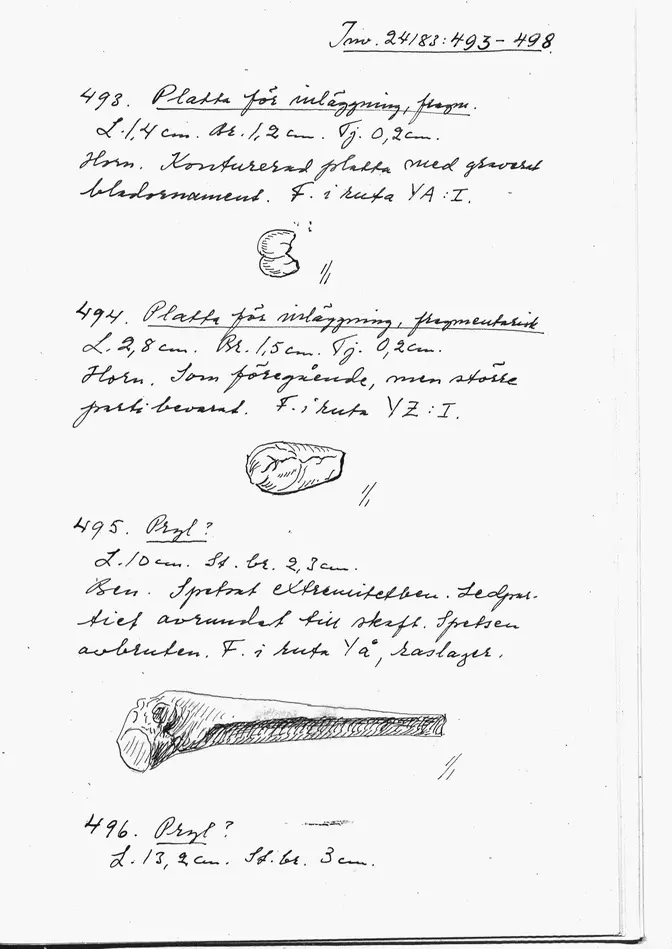 Inv. 24183:493-498.
493. Platta för inläggning, fragm.
L. 1,4 cm. Br. 1,2 cm. Tj. 0,2 cm.
Horn. Konturerad platta med graverat
bladornament. F. i ruta YA:I.
1/1
494. Platta för inläggning, fragmentarisk
L. 2,8 cm. Br. 1,5 cm. Tj. 0,2 cm.
Horn. Som föregående, men större
parti bevarat. F. i ruta YZ:I.
1/1
495. Pryl?
L. 10 cm. St. br. 2,3 cm.
Ben. Spetsat extremitetben. Ledpar-
tiet avrundat till skaft. Spetsen
avbruten. F. i ruta YÅ, raslager.
1/1
496. Pryl?
L. 13,2 cm. St. br. 3 cm.